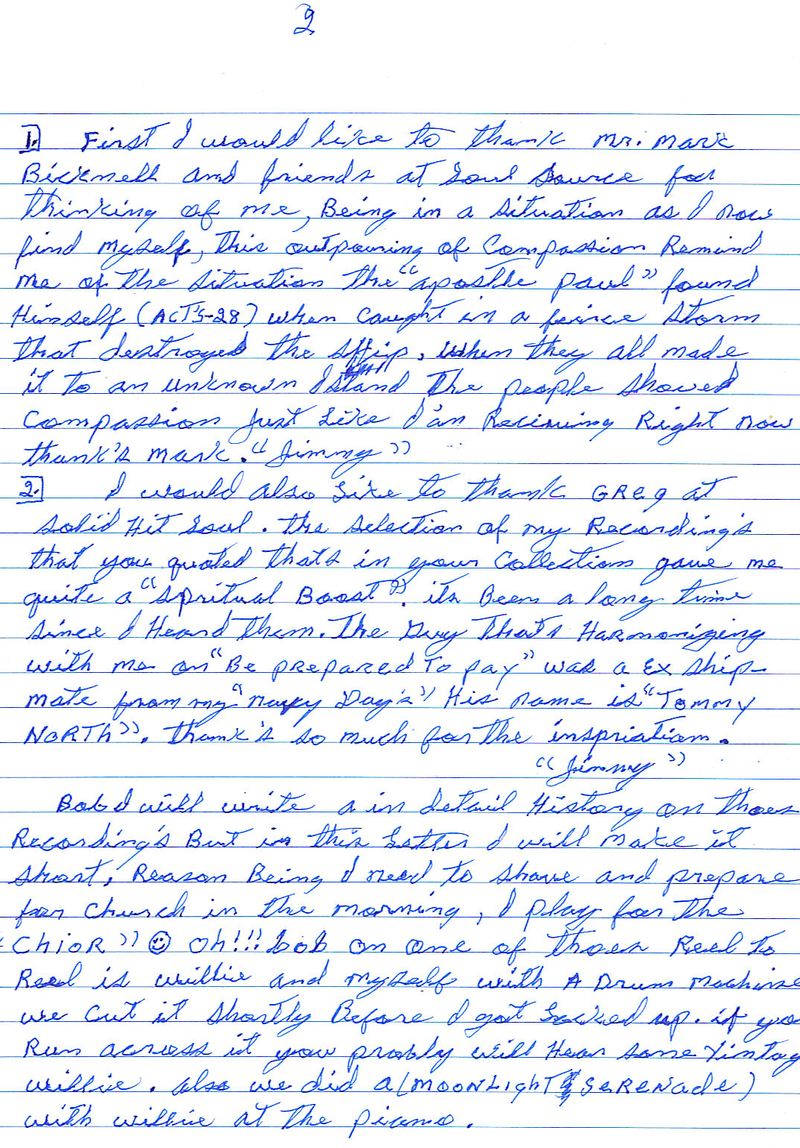 2
1. First I would like to thank Mr. Mark
Bicknell and friends at Soul Source for
thinking of me, Being in a situation as I now
find myself, this outpouring of Compassion Remind
me of the situation the "apostle paul" found
Himself (ACT'S-28) when caught in a feirce storm
that destroyed the ship, when they all made
it to an unknown Island the people showed
Compassion Just Like I'am Reciening Right now
thank's mark. "Jimmy"
2. I would also like to thank GREg at
solid Hit Soul. the selection of my Recording's
that you quoted thats in your Collections gave me
quite a "Spritual Boost". its Been a long time
since I Heard them. The Guy That's Harmonizing
with me on "Be prepared To pay" was a Ex ship-
mate from my "navy Day's" His name is "Tommy
NORTH". thank's so much for the inspriation.
"Jimmy"
Bob I will write a in detail History on thoes
Recording's But in this Letter I will make it
short, Reason Being I need to shave and prepare
for Church in the morning, I play for the
"CHioR" ☺ Oh!!! bob on one of thoes Reel to
Reel is willie and myself with A Drum machine
we cut it shortly Before I got Locked up. if yo
Run across it you probly will Hear some Vintag
willie. also we did a (MOONLIGHT SERENADE)
with willie at the piano.